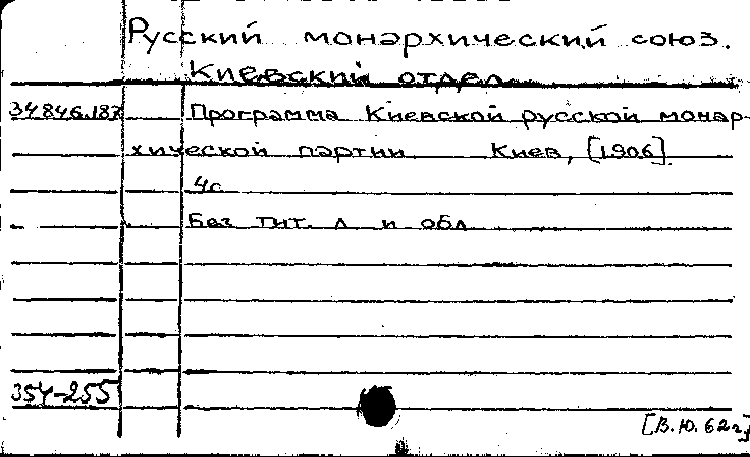 Русский монархический союз.
Киевский отдел
34846.187 Программа Киевской русской монар-
хической партии Киев, [1906]
4с
Без тит. л и обл
354-255
[В.Ю. 62г.]